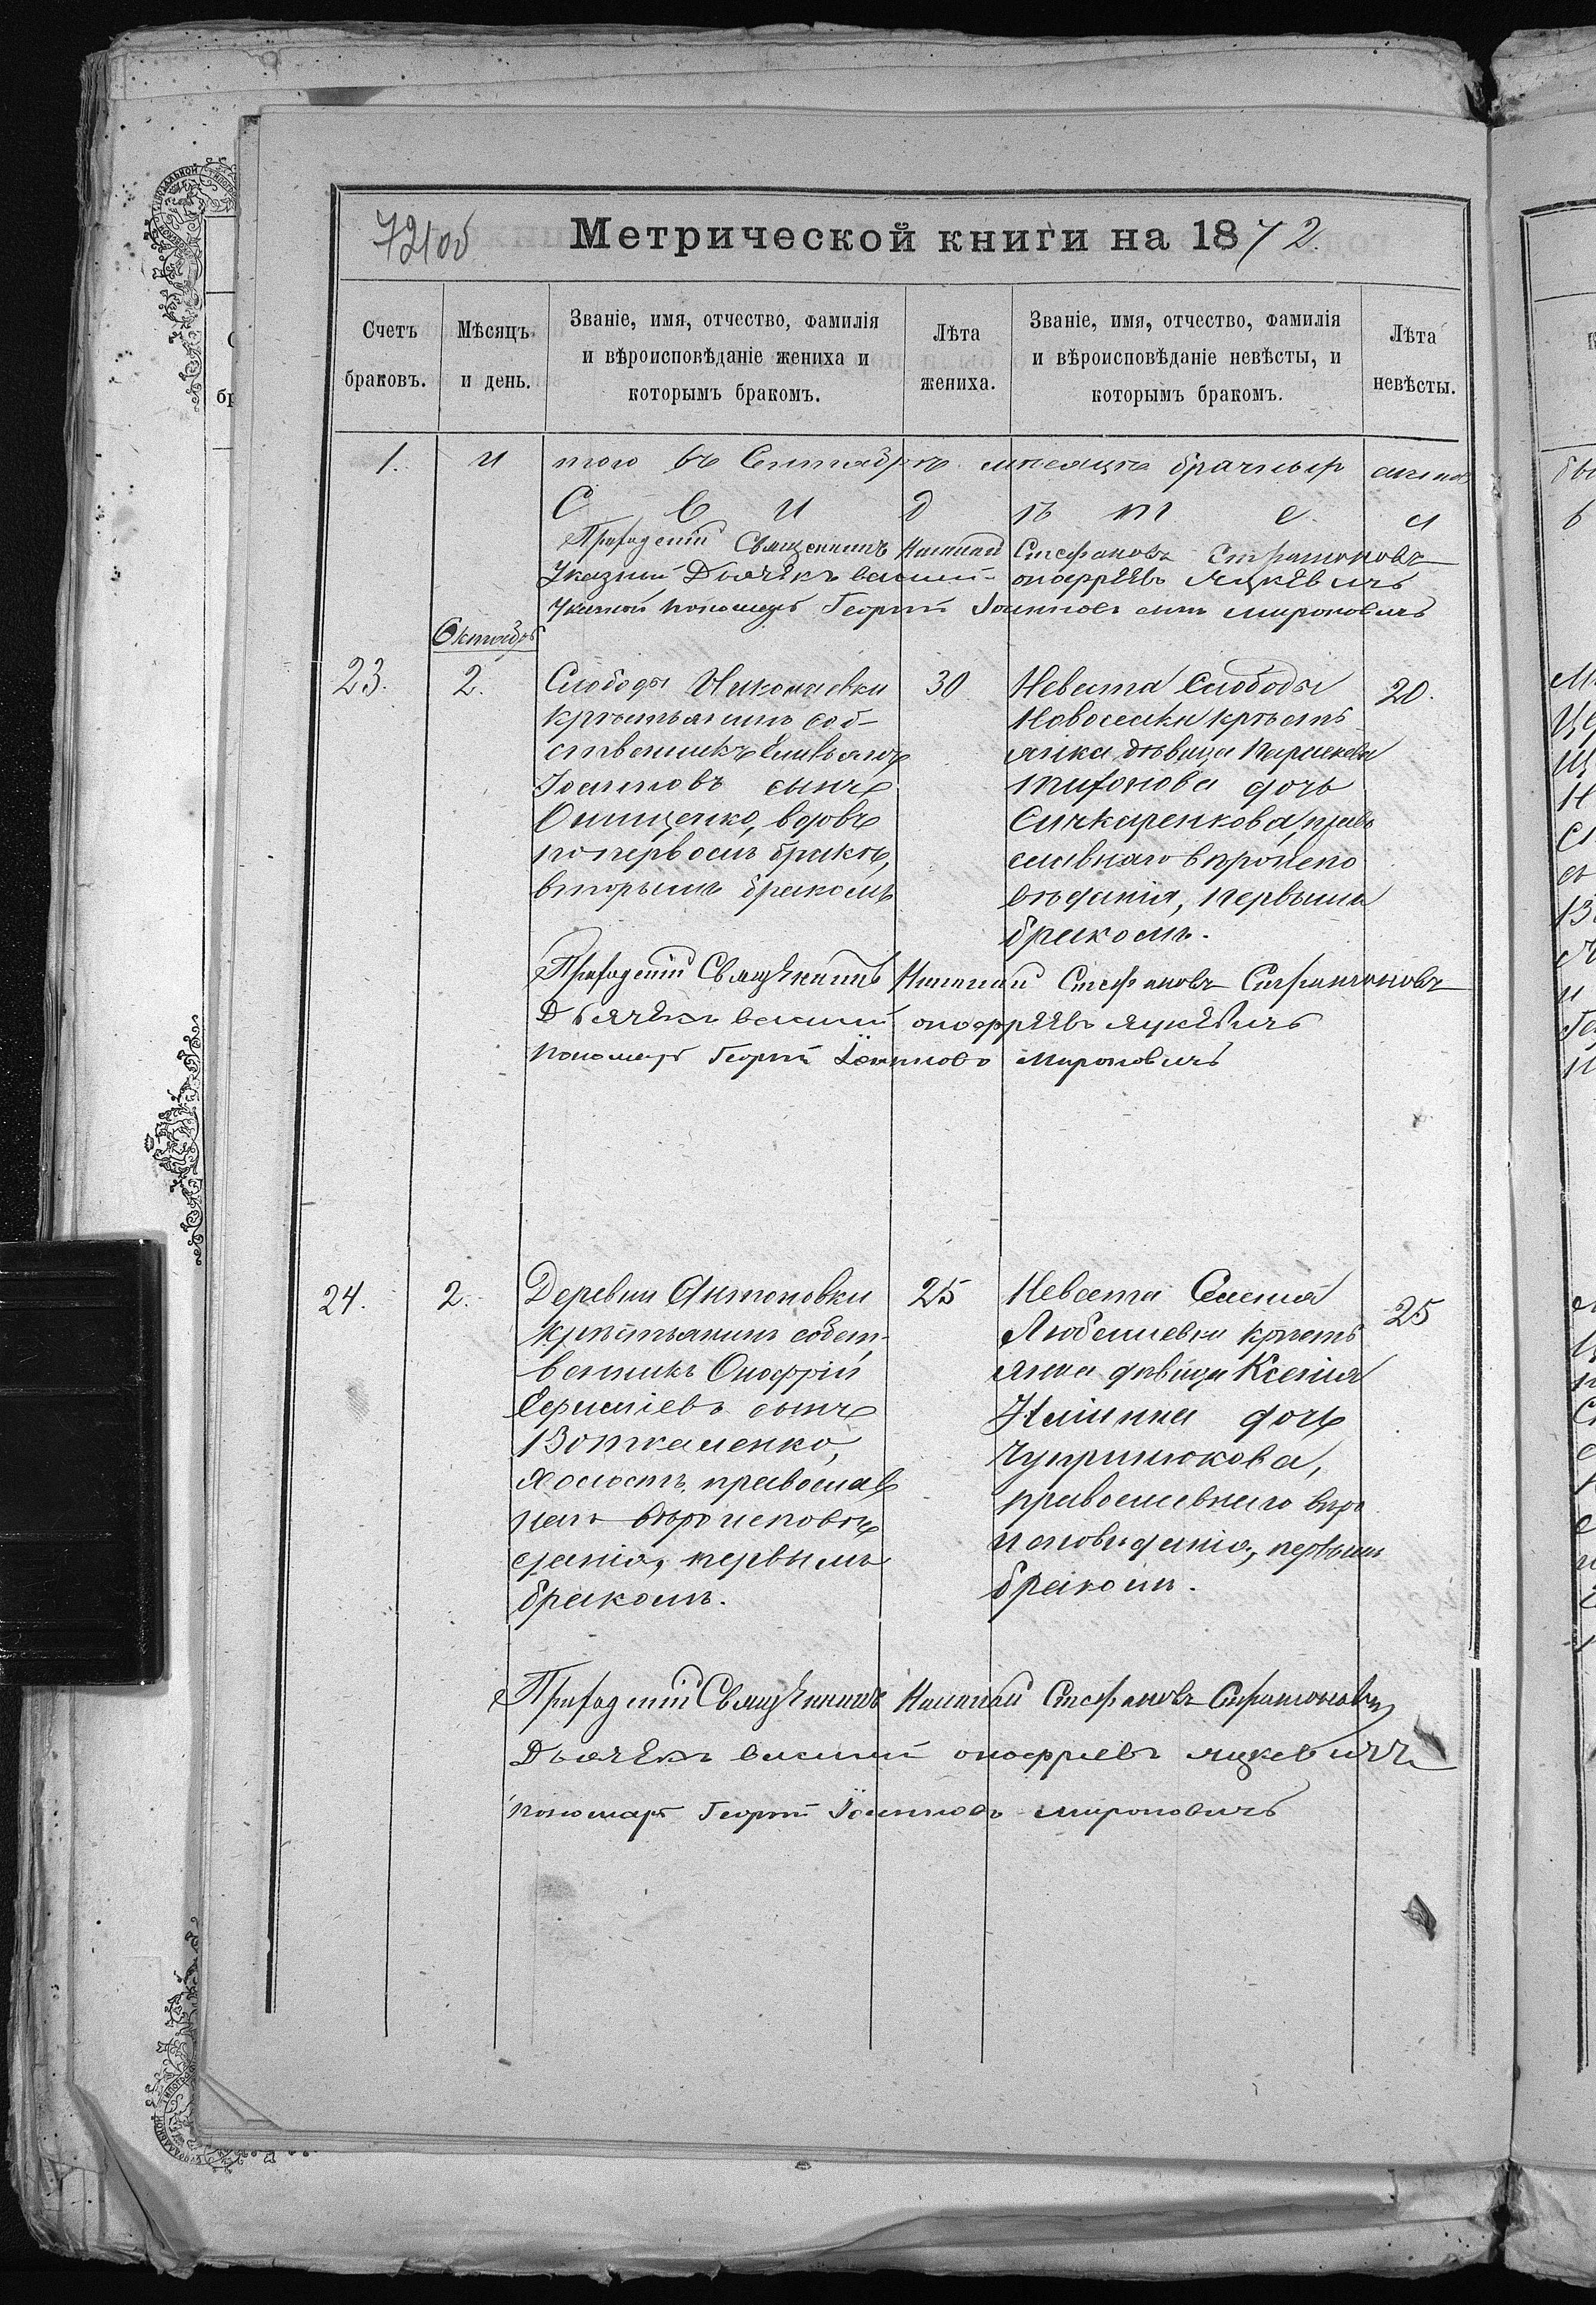 Метрической книги на 1872.
Счетъ браковъ.
Мѣсяцъ и день.
Званіе, имя, отчество, фамилія
и вѣроисповѣданіе жениха и
которымъ бракомъ.
Лѣта
жениха.
Званіе, имя, отчество, фамилія
и вѣроисповѣданіе невѣсты, и
которымъ бракомъ.
Лѣта
невѣсты.
1. И того въ Сентябрѣ мѣсяцѣ брачныхъ
С в и д ѣ т е л и
Приходскій Священникъ Стефановъ Стратоновъ
Указный Дьячекъ Василій Онофріевъ Яцкевичъ
Указной пономарь Георгій Іоанновъ сынъ Мироновичъ
Октябрь
23.
2.
Слободы Николаевки
крѣстьянинъ соб-
ственникъ Емельянъ
Іоанновъ сынъ
Онищенко, вдовъ
по первомъ бракѣ,
вторымъ бракомъ
30
Невеста Слободы
Новоселки крѣсть
янка дѣвица Параскева
Тифонова дочь
Сичкаренкова, право
славнаго вѣроиспо
вѣданія, первымъ
бракомъ.
20.
Приходскій Священникъ Стефановъ Стратоновъ
Дьячекъ Василій Онофріевъ Яцкевичъ
Пономарь Георгій Іоанновъ Мироновичъ
24.
2.
Деревни Антоновки
крѣстьянинъ собст-
венникъ Онофрій
сынъ
холостъ, православ
наго вѣроисповѣ
данія, первымъ
бракомъ.
25
Невеста Селенія
Любомиевки крѣсть
янка дѣвица Ксенія
дочь
Чупринюкова,
православнаго вѣро
исповѣданія, первымъ
бракомъ.
25
Приходскій Священникъ Стефановъ Стратоновъ
Дьячекъ Василій Онофріевъ Яцкевичъ
Пономарь Георгій Іоанновъ Мироновичъ